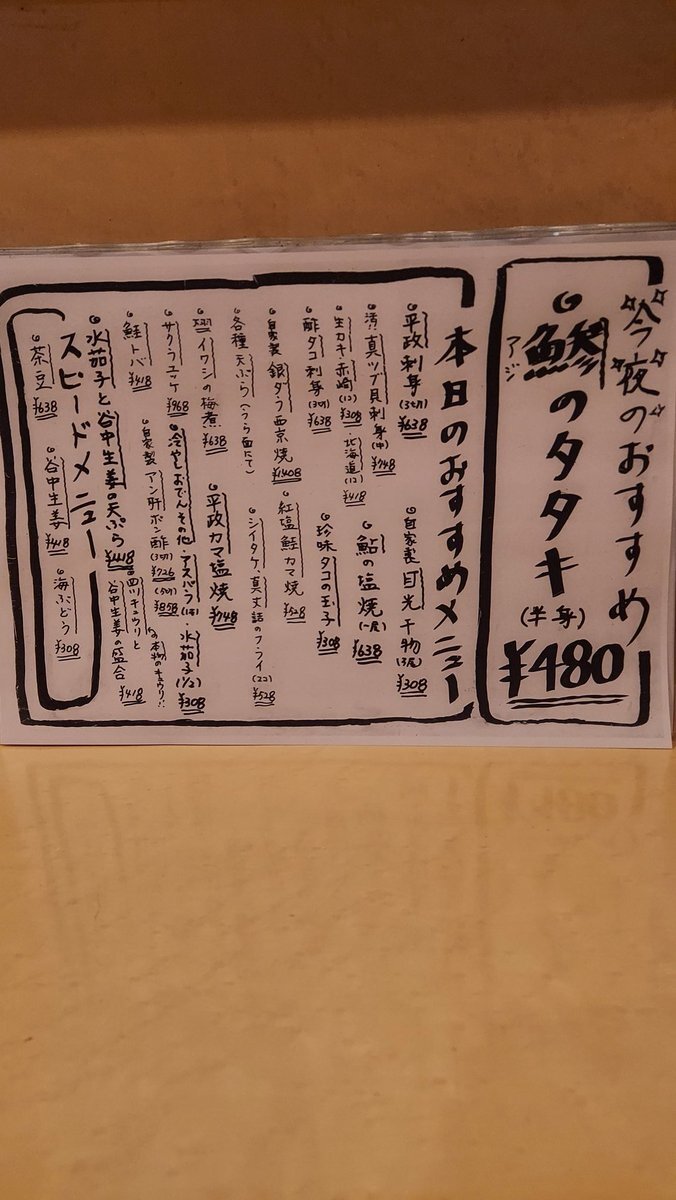 今夜のおすすめ
鯵のタタキ(半身)¥480
アジ
本日のおすすめメニュー
平政刺身(3切)¥638
自家製目光干物(3尾)¥308
真ツブ貝刺身(中)¥748
鮎の塩焼(一尾)¥638
生カキ・赤崎(1コ)¥308 北海道(1コ)¥418
酢タコ刺身(3切)¥638
珍味タコの玉子¥308
自家製銀ダラ西京焼¥1408
紅塩鮭カマ焼¥528
各種天ぷら(うら面にて)
シイタケ真丈詰のフライ(2コ)¥528
イワシの梅煮¥638
平政カマ塩焼¥748
サクラユッケ¥968
冷やしおでんその他・アスパラ(1本)・水茄子(1/2)¥308
鮭トバ¥418
自家製アン肝ポン酢(3切)¥726(5切)¥858
水茄子と谷中生姜の天ぷら
四川キュウリと谷中生姜の盛合¥418
スピードメニュー
茶豆¥638
谷中生姜¥418
海ぶどう¥308